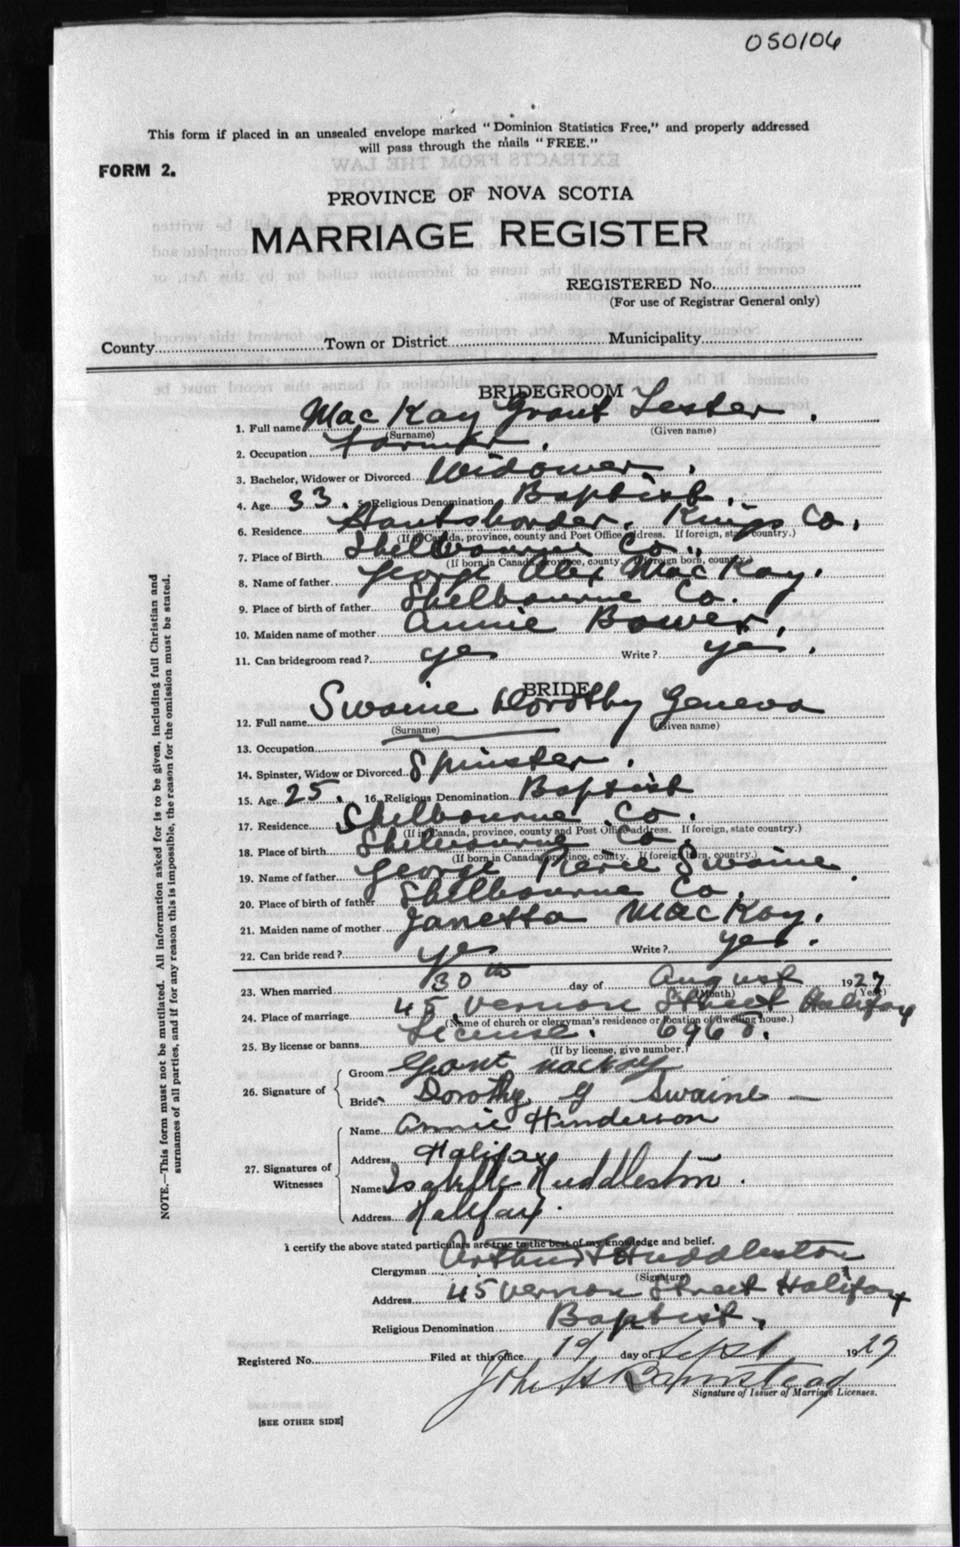 050106
This form if placed in an unsealed envelope marked "Dominion Statistics Free," and properly addressed
will pass through the mails "FREE."
FORM 2.
PROVINCE OF NOVA SCOTIA
MARRIAGE REGISTER
REGISTERED No.
(For use of Registrar General only)
County Town or District Municipality
BRIDEGROOM
1. Full name MacKay Grant Lester.
(Surname) (Given name)
2. Occupation Farmer.
3. Bachelor, Widower or Divorced Widower.
4. Age 33. 5. Religious Denomination Baptist.
6. Residence Hantsborder, Kings Co.
(If in Canada, province, county and Post Office address. If foreign, state country.)
7. Place of Birth Shelbourne Co.,
(If born in Canada, province, county. If foreign born, country.)
8. Name of father George Alex MacKay.
9. Place of birth of father Shelbourne Co.
10. Maiden name of mother Annie Bower.
11. Can bridegroom read? yes Write? yes.
BRIDE
12. Full name Swaine Dorothy Geneva
(Surname) (Given name)
13. Occupation
14. Spinster, Widow or Divorced Spinster.
15. Age 25. 16. Religious Denomination Baptist
17. Residence Shelbourne Co.
(If in Canada, province, county and Post Office address. If foreign, state country.)
18. Place of birth Shelbourne Co.
(If born in Canada, province, county. If foreign born, country.)
19. Name of father George Swaine.
20. Place of birth of father Shelbourne Co.
21. Maiden name of mother Janetta MacKay.
22. Can bride read? yes Write? yes.
23. When married 30th day of August 1927
(Month) (Year)
24. Place of marriage 45 Vernon Street Halifax
(Name of church or clergyman's residence or location of dwelling house.)
25. By license or banns License.
(If by license, give number.)
26. Signature of
Groom Grant Mackay
Bride Dorothy G Swaine
27. Signatures of Witnesses
Name Annie Henderson
Address Halifax
Name Isabelle Huddleston.
Address Halifax.
I certify the above stated particulars are true to the best of my knowledge and belief.
Clergyman Arthur Huddleston
(Signature)
Address 45 Vernon Street Halifax
Religious Denomination Baptist.
Registered No. Filed at this office 19 day of Sept 1927
John
Signature of Issuer of Marriage Licenses.
[SEE OTHER SIDE]
NOTE.—This form must not be mutilated. All information asked for is to be given, including full Christian and
surnames of all parties, and if for any reason this is impossible, the reason for the omission must be stated.